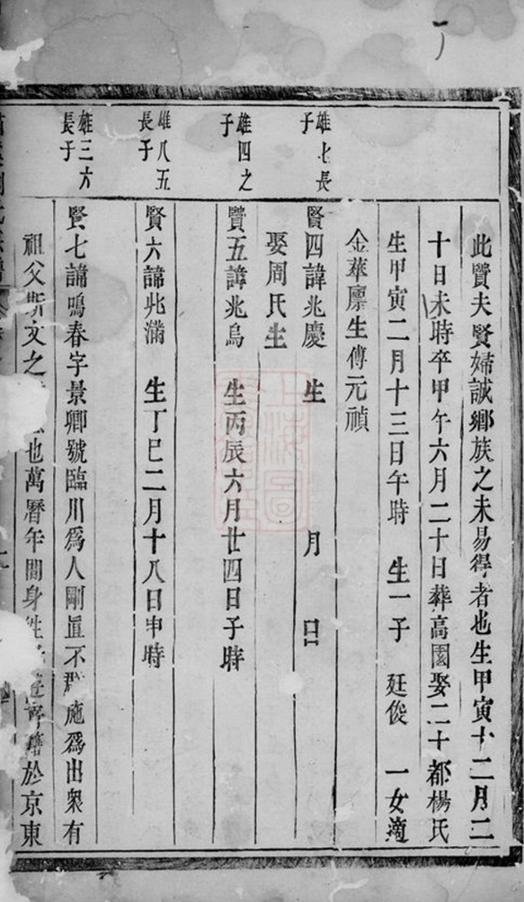 此賢夫賢婦誠鄉族之未易得者也生甲寅十二月二
十日未時卒甲午六月二十日葬高園娶二十都楊氏
生甲寅二月十三日午時 生一子 廷俊 一女適
金華廪生傅元禎
雄七長子
賢四諱兆慶 生 月 日
娶周氏生
雄四之子
賢五諱兆烏 生丙辰六月廿四日子時
雄八五長子
賢六諱兆滿 生丁巳二月十八日申時
雄三六長子
賢七諱鳴春字景卿號臨川爲人剛直不 施爲出衆有
祖父斯文之 也萬曆年間身 於京東